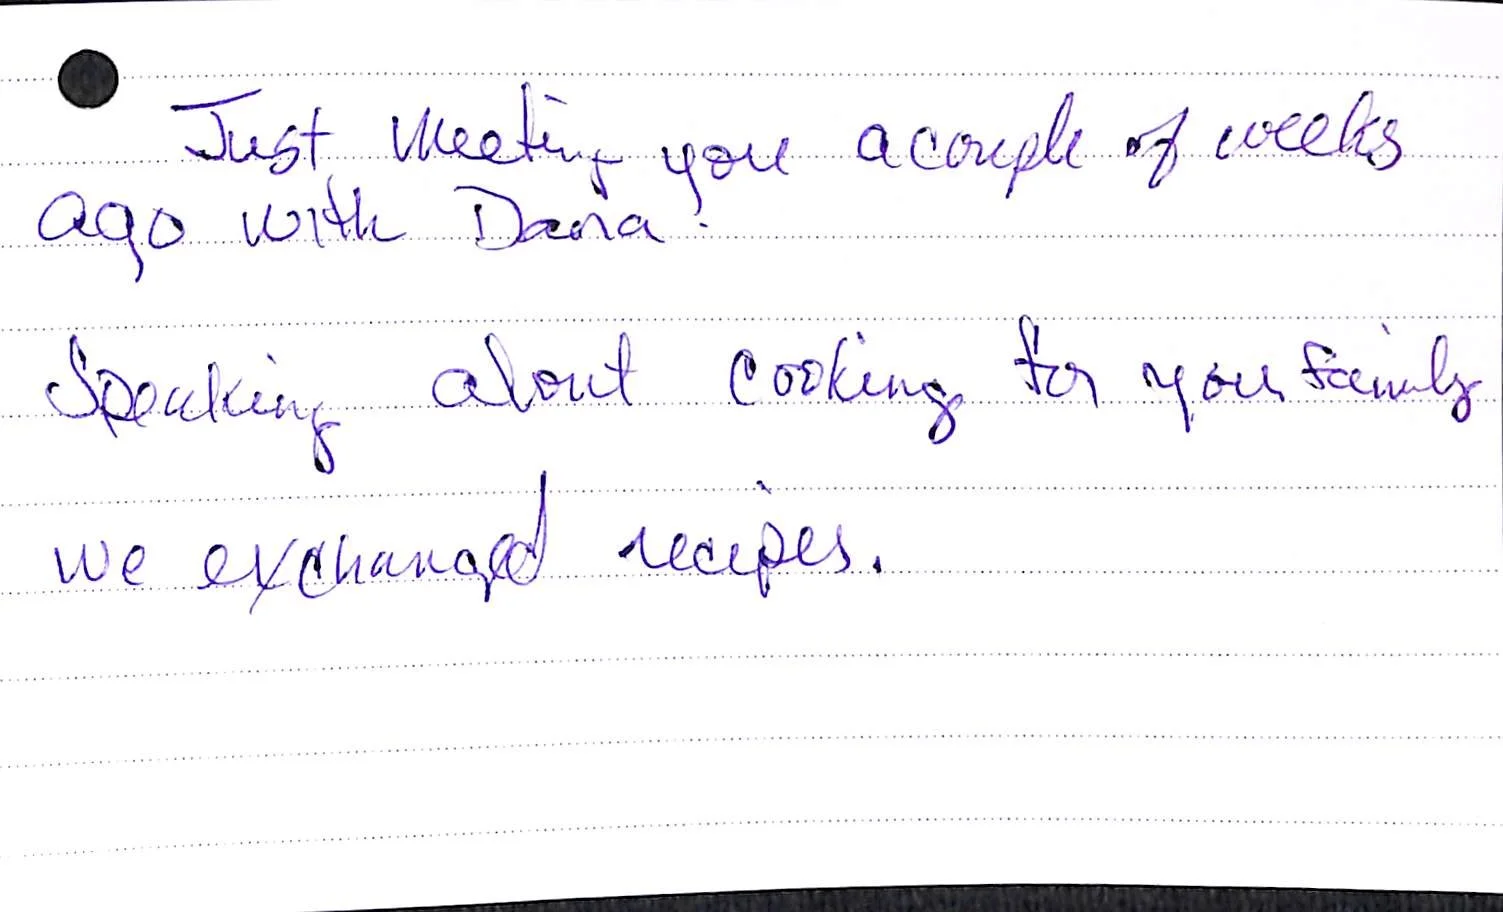 Just meeting you a couple of weeks
ago with Dana.
Speaking about cooking for your family
we exchanged recipes.